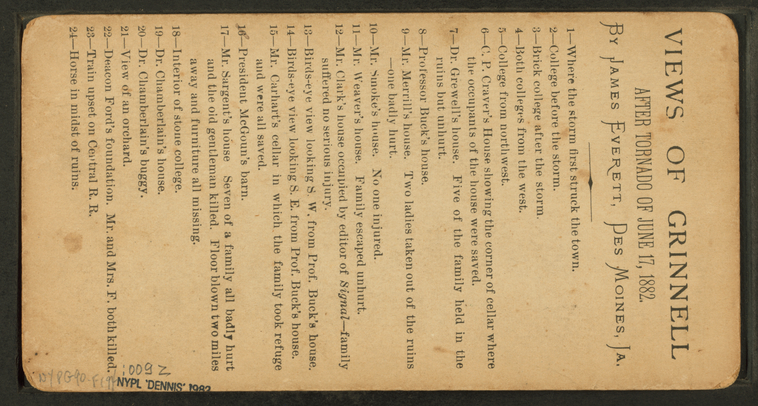 VIEWS OF GRINNELL
AFTER TORNADO OF JUNE 17, 1882.
BY JAMES EVERETT, DES MOINES, IA.
1—Where the storm first struck the town.
2—College before the storm.
3—Brick college after the storm.
4—Both colleges from the west.
5—College from northwest.
6—C. P. Craver's House showing the corner of cellar where
the occupants of the house were saved.
7—Dr. Grewell's house. Five of the family held in the
ruins but unhurt.
8—Professor Buck's house.
9—Mr. Merrill's house. Two ladies taken out of the ruins
—one badly hurt.
10—Mr. Smoke's house. No one injured.
11—Mr. Weaver's house. Family escaped unhurt.
12—Mr. Clark's house occupied by editor of Signal—family
suffered no serious injury.
13—Birds-eye view looking S. W. from Prof. Buck's house.
14—Birds-eye view looking S. E. from Prof. Buck's house.
15—Mr. Carhart's cellar in which the family took refuge
and were all saved.
16—President McGoun's barn.
17—Mr. Sargent's house Seven of a family all badly hurt
and the old gentleman killed. Floor blown two miles
away and furniture all missing.
18—Interior of stone college.
19—Dr. Chamberlain's house.
20—Dr. Chamberlain's buggy.
21—View of an orchard.
22—Deacon Ford's foundation. Mr. and Mrs. F. both killed.
23—Train upset on Central R. R.
24—Horse in midst of ruins.
NYPL 'DENNIS' 1982